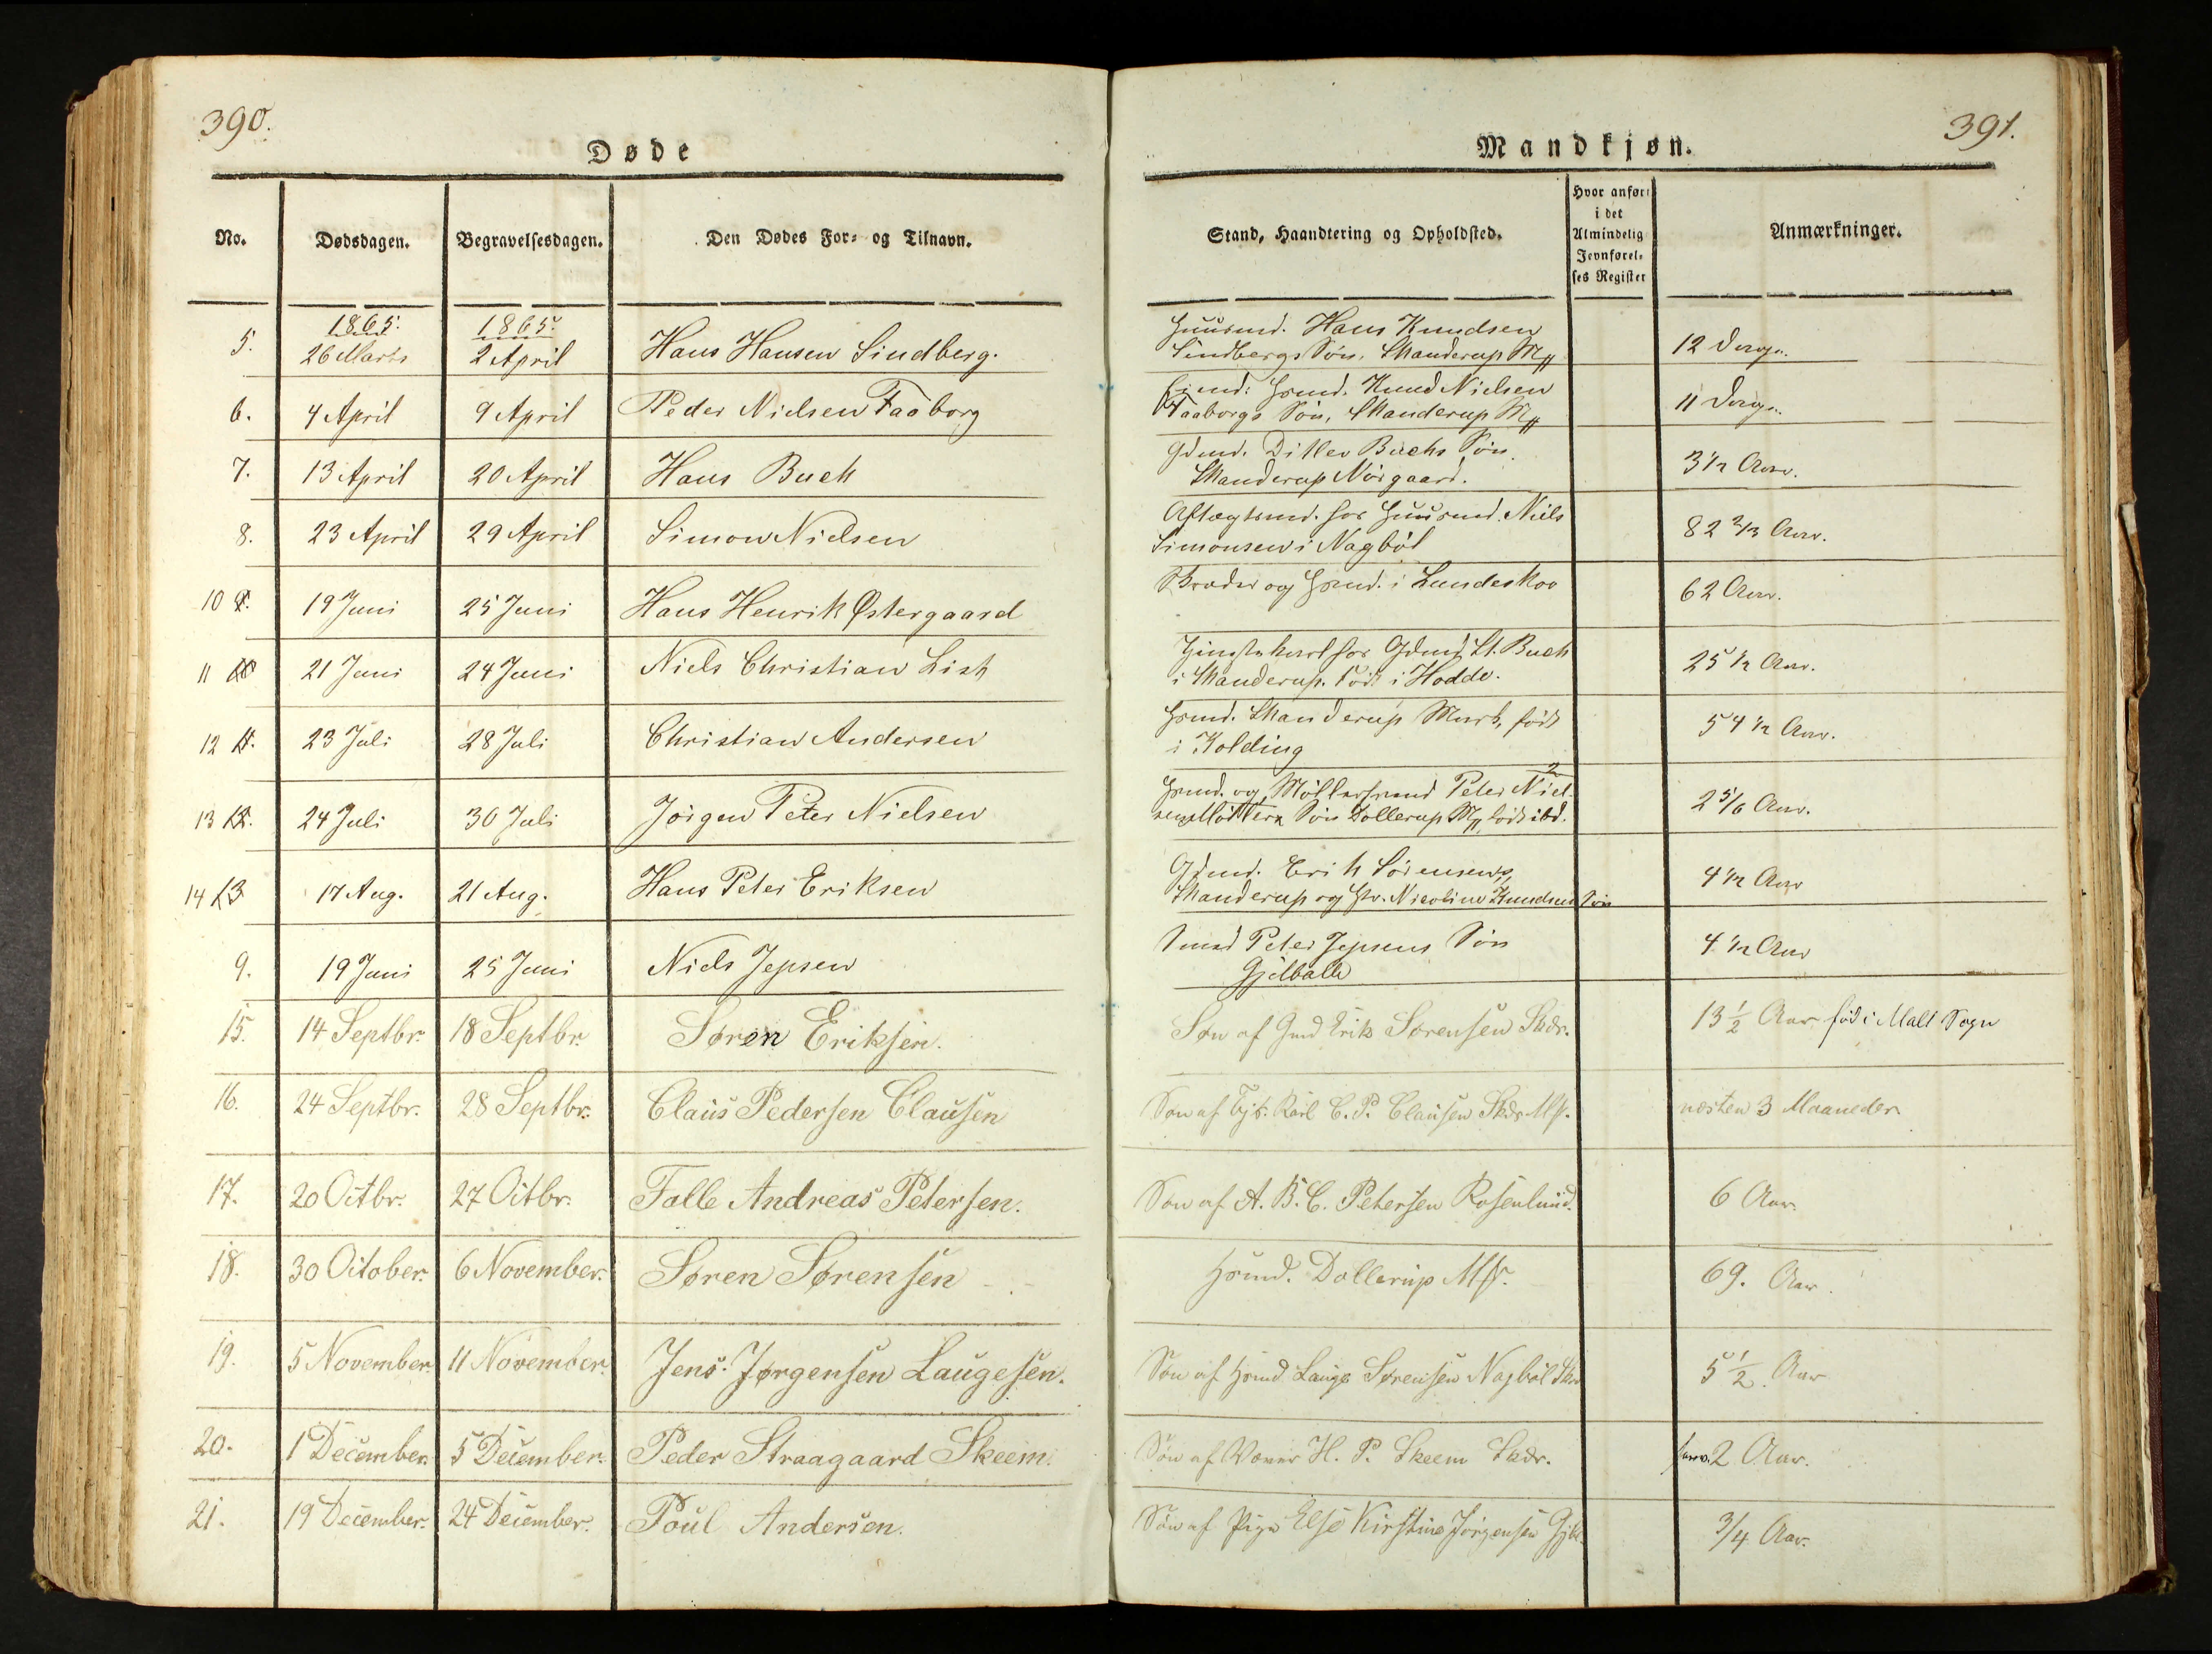 390.
Døde
No.
Dødsdagen.
Begravelsesdagen.
Den Dødes For= og Tilnavn.
1865.
1865.
5.
26 Marts
2 April
Hans Hansen Lindberg.
6.
4 April
9 April
Peder Nielsen Faaborg
7.
13 April
20 April
Hans Buch
8.
23 April
29 April
Simon Nielsen
10
19 Juni
25 Juni
Hans Henrik Østergaard
11
21 Juni
24 Juni
Niels Christian List
12
23 Juli
28 Juli
Christian Andersen
13
24 Juli
30 Juli
Jörgen Peter Nielsen
14 13
17 Aug.
21 Aug.
Hans Peter Eriksen
9.
19 Juni
25 Juni
Niels Jepsen
15.
14 Septbr.
18 Septbr.
Søren Eriksen.
16.
24 Septbr.
28 Septbr.
Claus Pedersen Clausen
17.
20 Octbr.
27 Octbr.
Falle Andreas Petersen.
18.
30 October.
6 November.
Søren Sørensen
19.
5 November
11 November.
Jens Jørgensen Laugesen.
20.
1 December.
5 December.
Peder Straagaard Skeem.
21.
19 December.
24 December.
Poul Andersen.
391.
Mandkjøn.
Stand, Haandtering og Opholdsted.
Hvor anført
i det
Almindelig
Jevnførel=
ses Register
Anmærkninger.
Huusmd. Hans Knudsen
Lindbergs Sön, Skanderup M
12 Dage.
Hsmd. Knud Nielsen
Faaborgs Sön, Skanderup M
11 Dage.
Gdmd. Ditlev Buchs Sön
Skanderup Nörgaard.
3 1/2 Aar.
Aftægtsmd. hos Huusmd. Niels
Simonsen i Nagböl
82 2/3 Aar.
og Hsmd. i Lundeskov
62 Aar.
hos Gdmd. St. Buch
i Skanderup. Född i Hodde.
25 1/2 Aar.
Hsmd. Skanderup Mark, född
i Kolding
54 1/2 Aar.
Hsmd. og Peter Niel-
Sön Dollerup M, född ibd.
2 5/6 Aar.
Gdmd. Erik Sörensens,
Skanderup og Hst. Nicoline Knudsens Sön
4 1/2 Aar
Smed Peter Jepsens Sön
Gjelballe
4 1/2 Aar
Søn af Gmd Erik Sørensen Skdr.
13 1/2 Aar, föd i Malt Sogn
Søn af Karl C. P. Clausen Skdr. Mk.
næsten 3 Maaneder
Søn af A. B. C. Petersen Rosenlund.
6 Aar.
Hsmd. Dollerup Mk.
69. Aar.
Søn af Hsmd Lauge Sørensen Nagbøl
5 1/2 Aar
Søn af H. P. Skeem Skdr.
2 Aar.
Søn af Pige Else Kirstine Jörgensen
3/4 Aar.